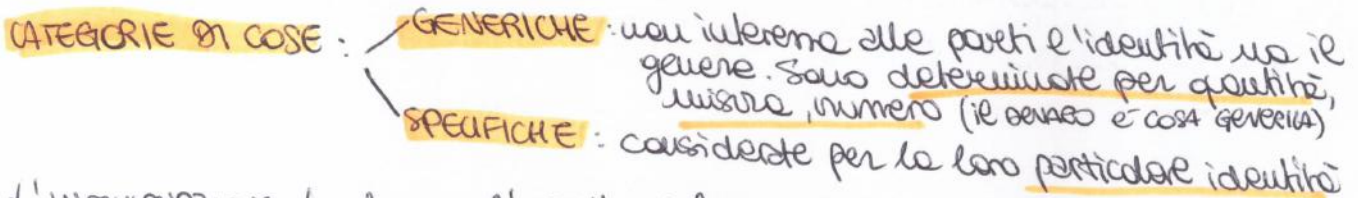 CATEGORIE DI COSE: GENERICHE: non interessa alle parti l'identità ma il
genere. Sono determinate per quantità,
misura, numero (il DENARO È COSA GENERICA)
SPECIFICHE: considerate per la loro particolare identità